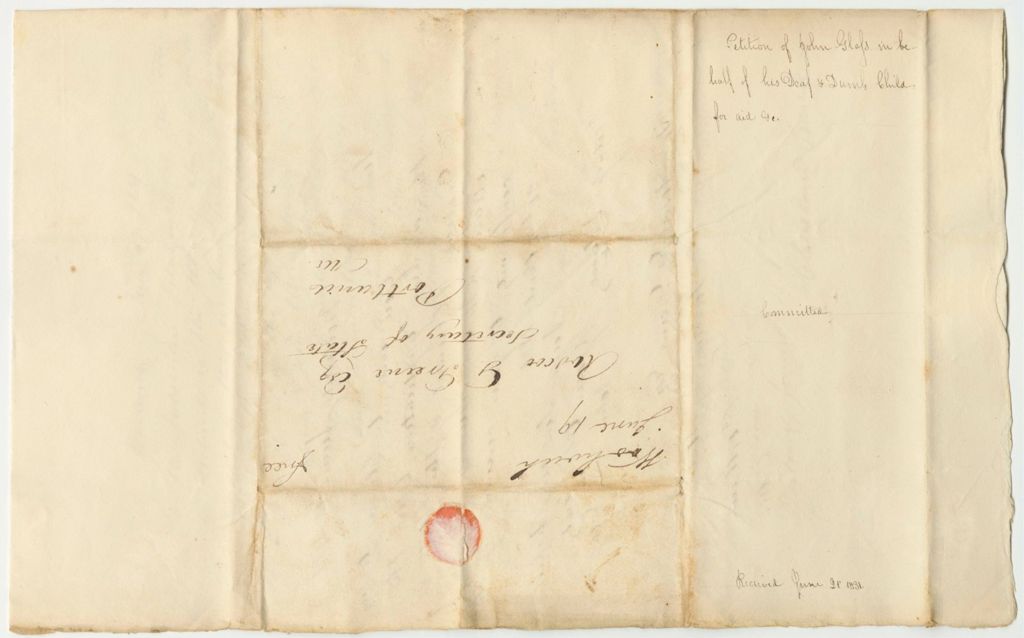 Petition of John Glass in be-
half of his Deaf & Dumb Child
for aid &c.
Committed
Received June 21 1831
June 19
Free
Roscoe G Greene Esq
Secretary of State
Portland
Me